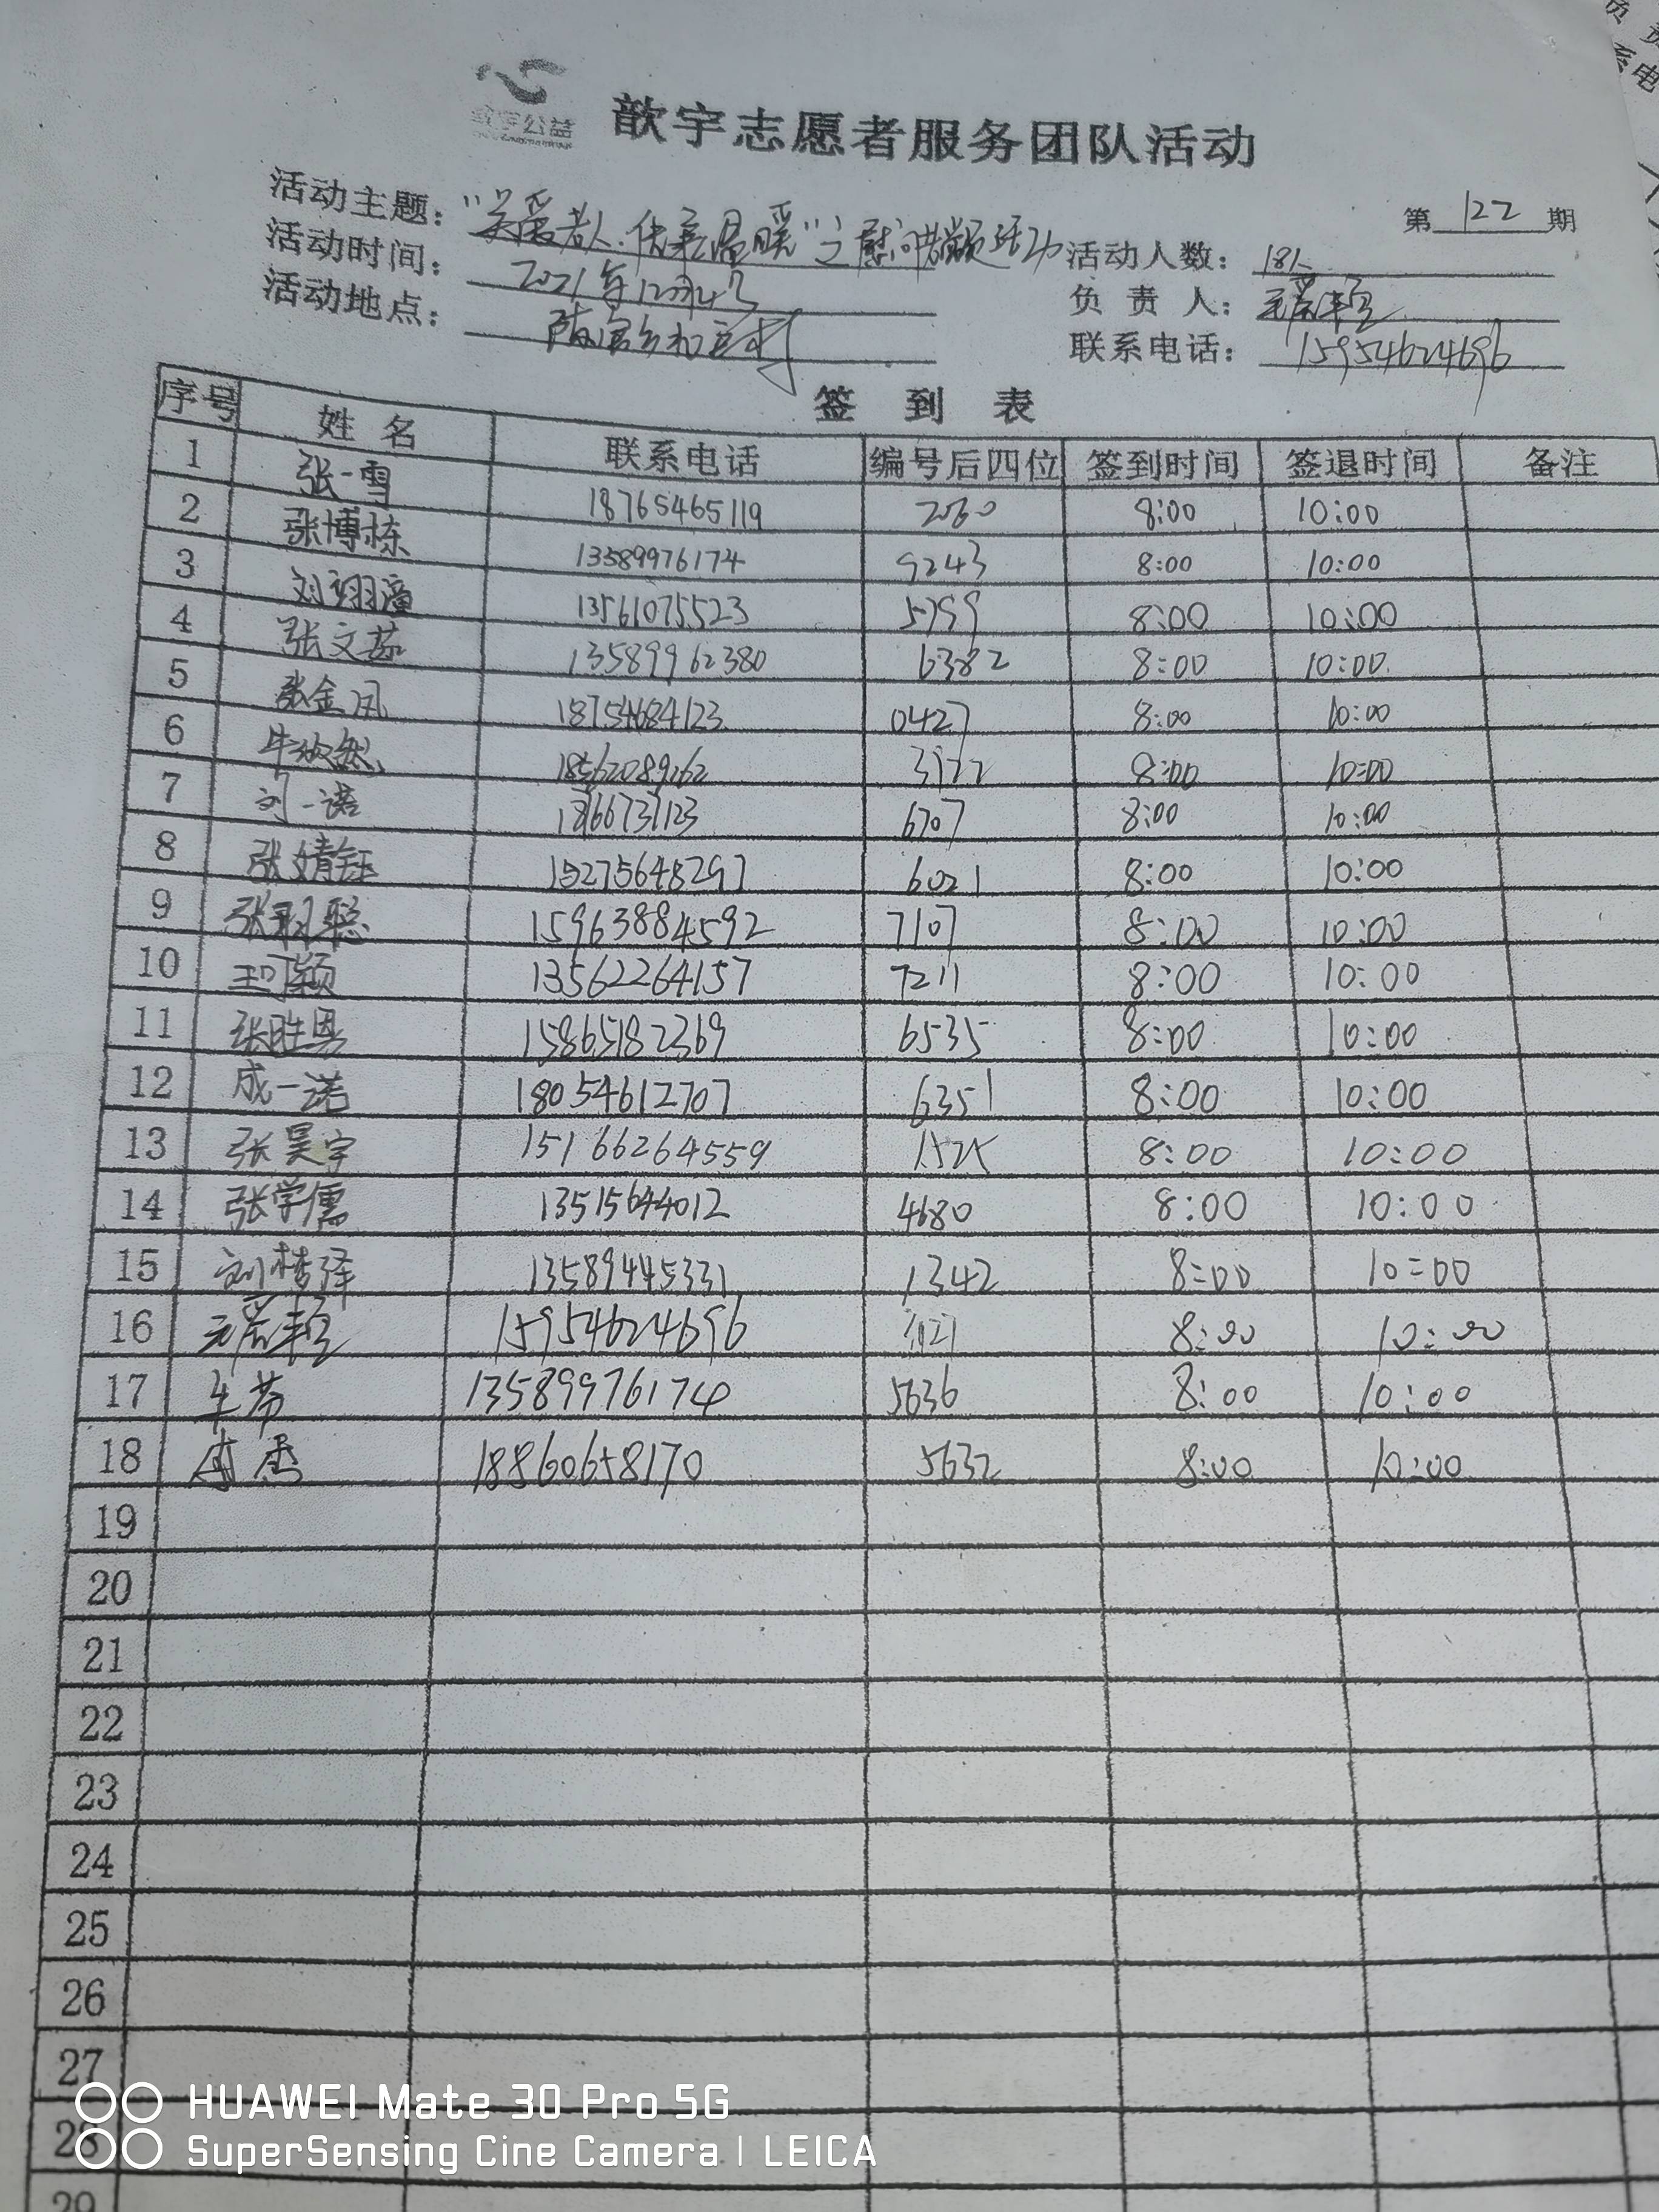 歆宇公益
歆宇志愿者服务团队活动
第 122 期
活动主题：“关爱老人.传承温暖”之慰问老党员活动
活动人数：18人
活动时间：2021年12月4号
负 责 人：
活动地点：
联系电话：15954624696
签 到 表
序号 姓名 联系电话 编号后四位 签到时间 签退时间 备注
1 张一雪 18765465119 2060 8:00 10:00
2 张博栋 13589976174 9243 8:00 10:00
3 刘翊潼 13561075523 5799 8:00 10:00
4 张文茹 13589962380 6382 8:00 10:00
5 张金凤 18754684123 0427 8:00 10:00
6 牛欣然 18562089262 3722 8:00 10:00
7 刘一诺 6707 8:00 10:00
8 张婧钰 15275648297 6021 8:00 10:00
9 张羽聪 15963884592 7107 8:00 10:00
10 王可颖 13562264157 7211 8:00 10:00
11 张胜恩 15865182369 6535 8:00 10:00
12 成一诺 18054612707 6351 8:00 10:00
13 张昊宇 15166264559 1525 8:00 10:00
14 张学儒 13515644012 4680 8:00 10:00
15 刘梓泽 13589445331 1342 8:00 10:00
16 15954624696 8:00 10:00
17 13589976174 5636 8:00 10:00
18 18860658170 5632 8:00 10:00
19
20
21
22
23
24
25
26
27
28
29
HUAWEI Mate 30 Pro 5G
SuperSensing Cine Camera | LEICA